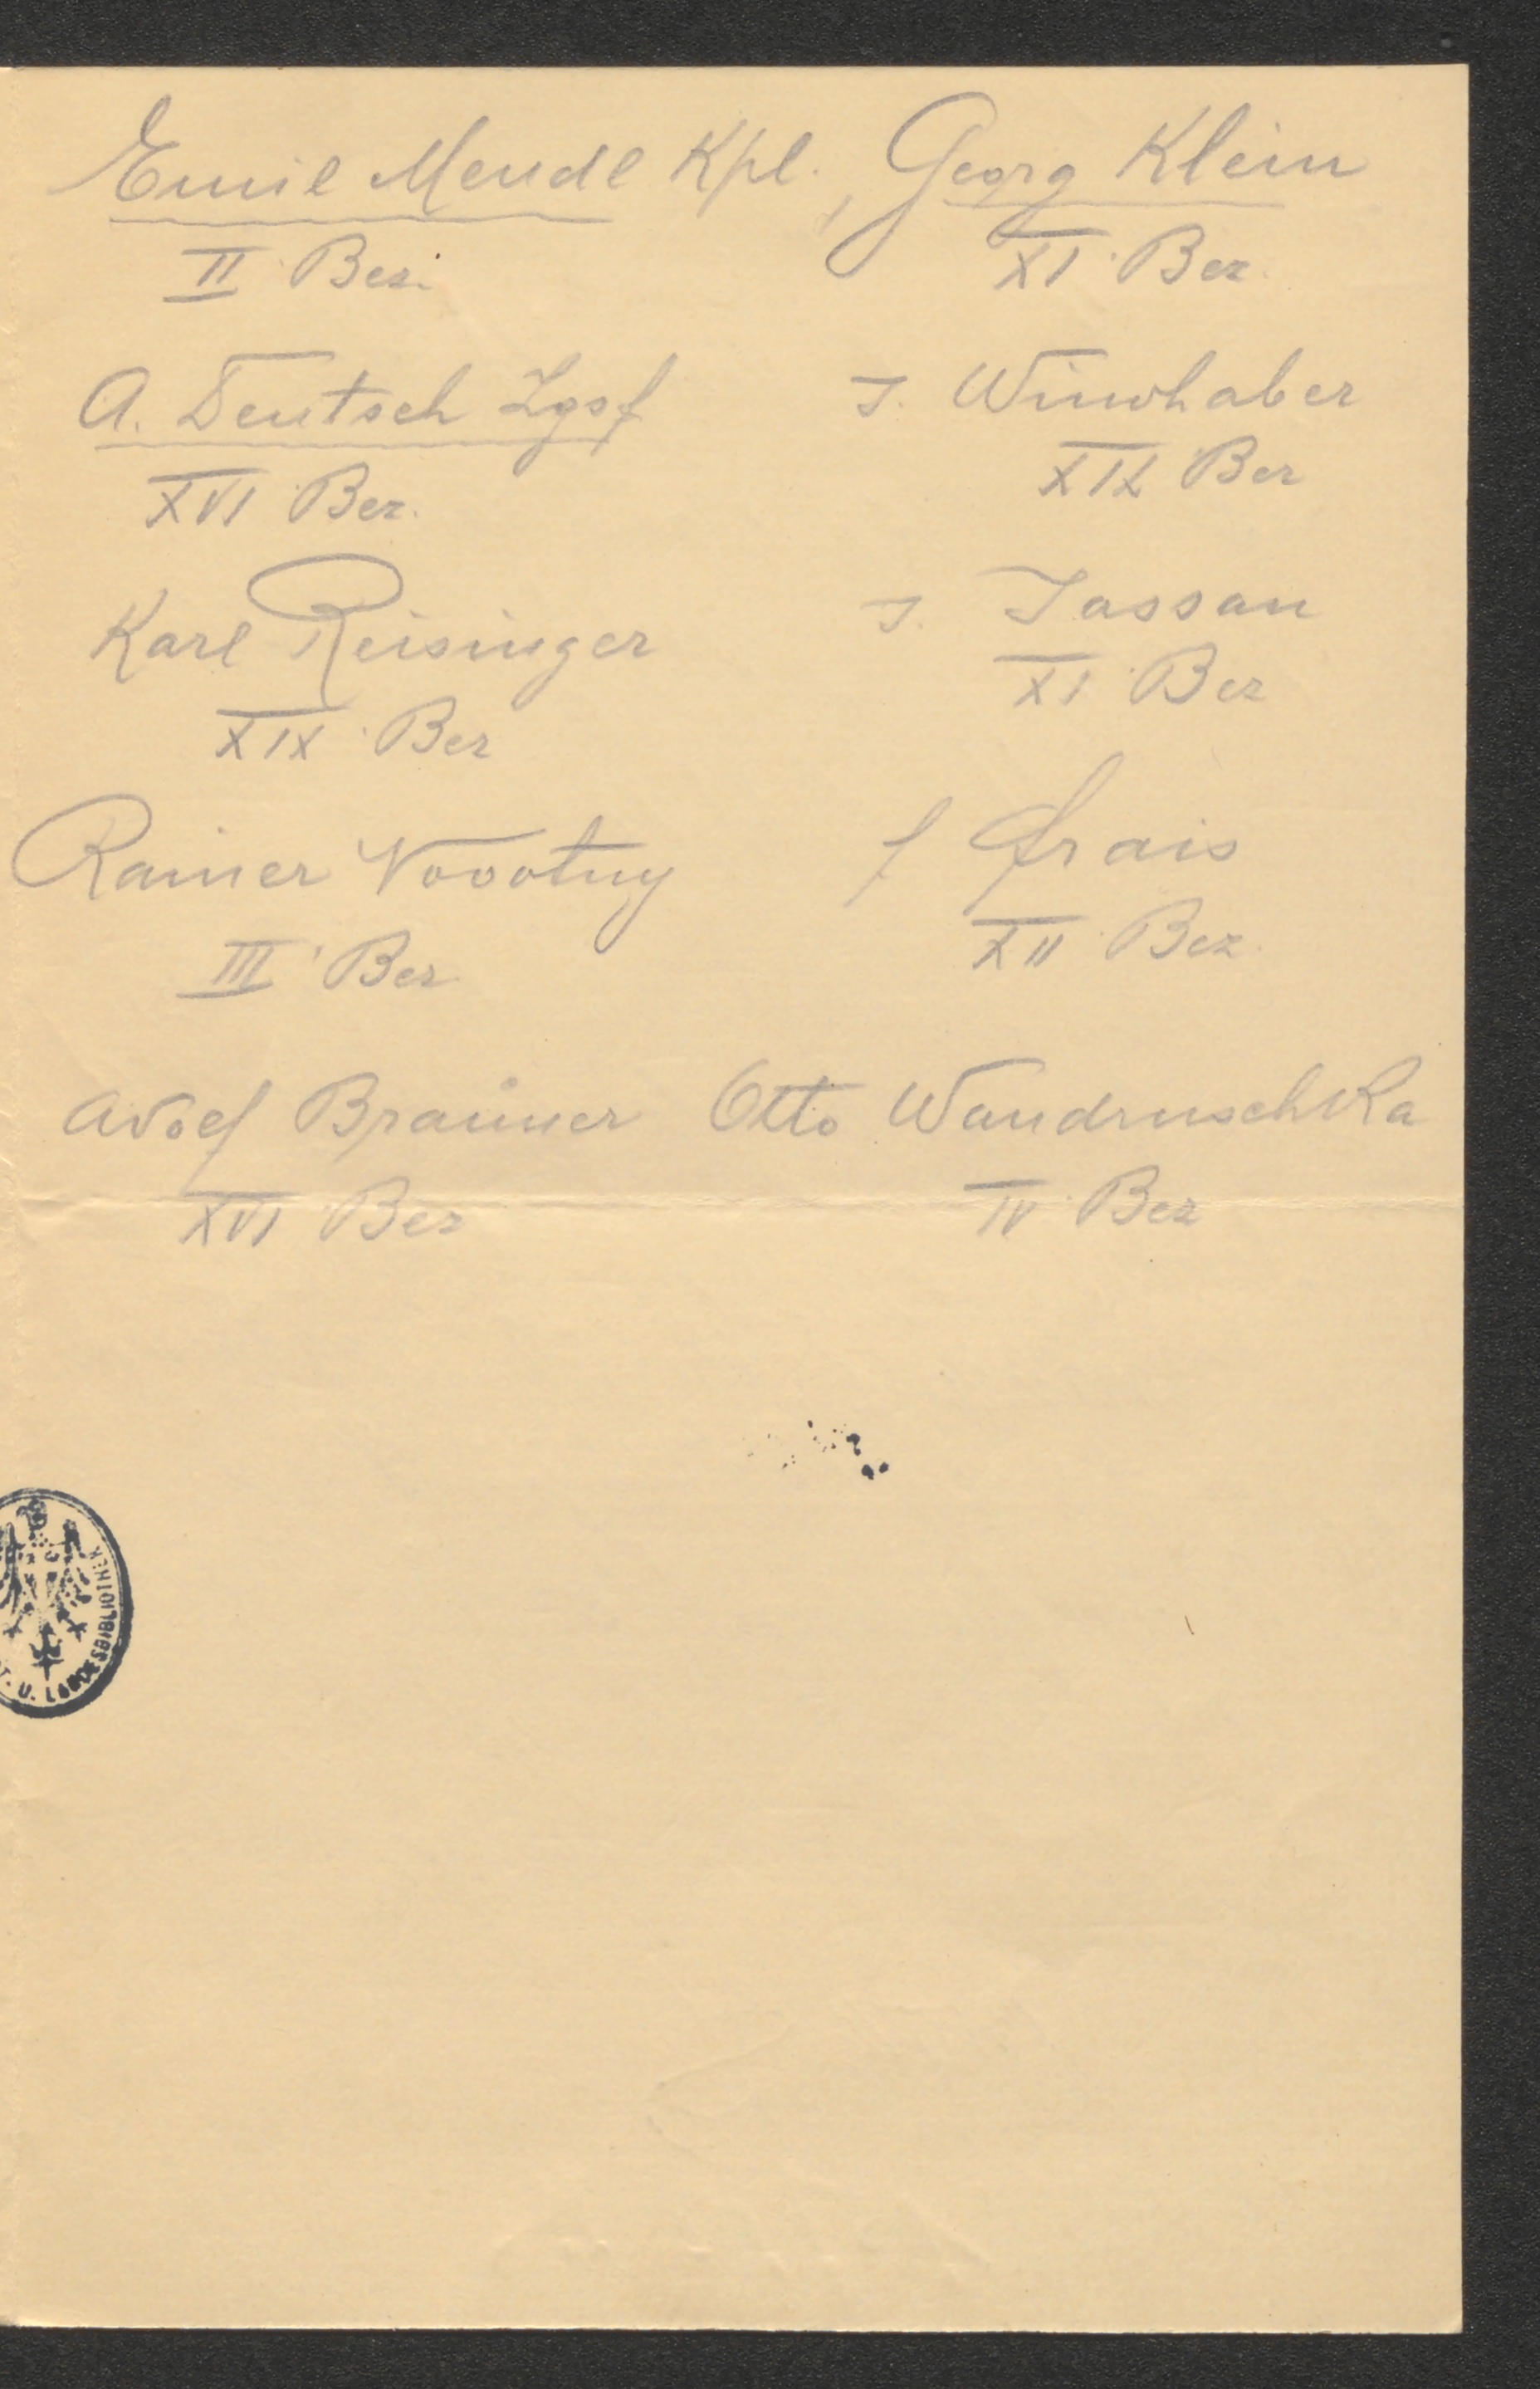 Emil Mendl Kpl., Georg Klein
II Bez. XI Bez.
A. Deutsch Zgsf J. Winohaber
XVI Bez. XIX Bez
Karl Reisinger J. Jassan
XIX Bez XI Bez
Rainer Novotny f Frais
III Bez XII Bez.
Adolf Brauner Otto Wandruschka
XVI Bez IV Bez
U. LANDESBIBLIOTHEK